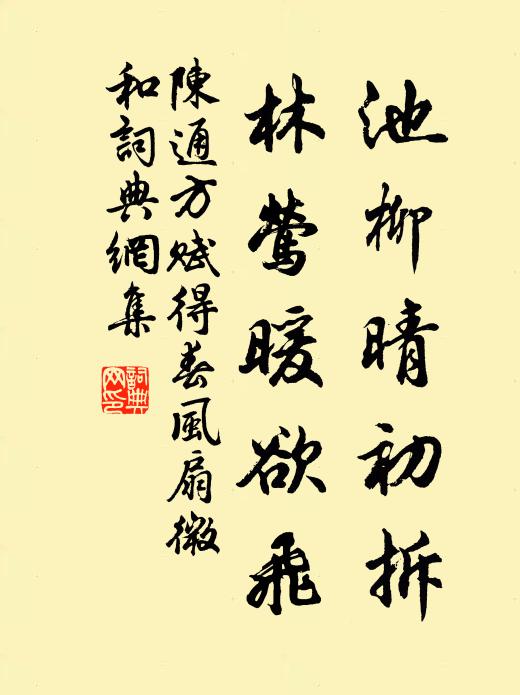 池柳晴初拆
林莺暖欲飛
陳通方賦得春風扇微
和詞典網集
詞典